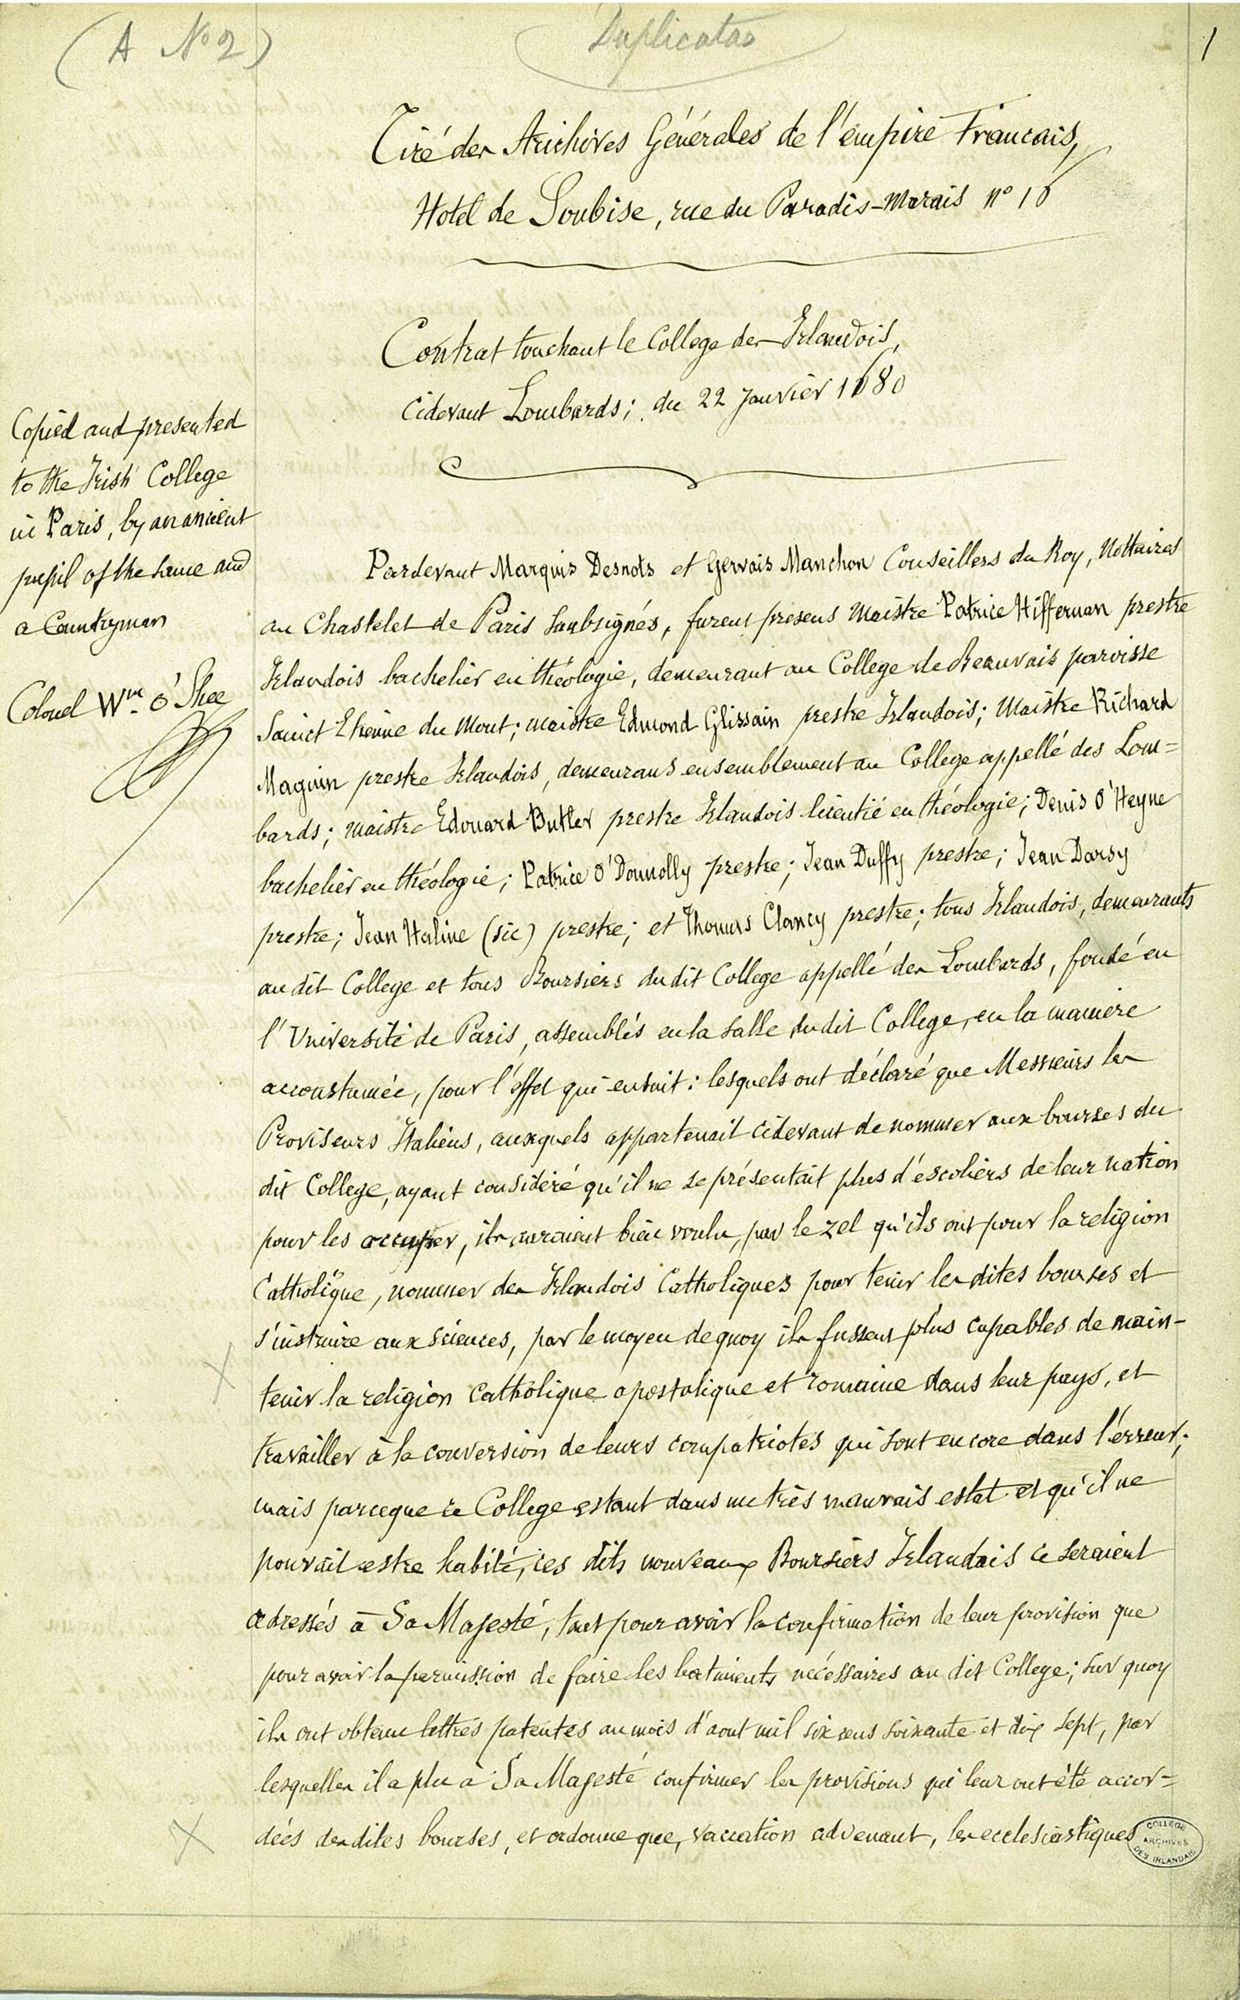 (A No 2)
Duplicatas
1
Tiré des Archives Générales de l'émpire Francais,
Hotel de Soubise, rue du Paradis-Marais n° 16
Contrat touchant le College des Irlandois,
cidevant Lombards; du 22 Janvier 1680
Copied and presented
to the Irish College
in Paris, by an ancient
pupil of the same and
a Countryman
Colonel Wm O'Shee
Pardevant Marquis Desnots et Gervais Manchon Conseillers du Roy, Nottaires
au Chastelet de Paris Soubsignés, furent présens Maistre Patrice Hiffernan prestre
Irlandois bachelier en théologie, demeurant au College de Beauvais paroisse
Sainct Etienne du Mont; maistre Edmond Glissain prestre Irlandois; Maistre Richard
Maginn prestre Irlandois, demeurans ensemblement au College appellé des Lom=
bards; maistre Edouard Butler prestre Irlandois licentié en théologie; Denis O'Heyne
bachelier en théologie; Patrice O'Donnolly prestre; Jean Duffy prestre; Jean Darsy
prestre; Jean Haline (sic) prestre; et Thomas Clancy prestre; tous Irlandois, demeurants
au dit College et tous Boursiers du dit College appellé des Lombards, fondé en
l'Université de Paris, assemblés en la Salle du dit College, en la maniere
accoustumée, pour l'éffet qui ensuit: lesquels ont déclaré que Messieurs les
Proviseurs Italiens, auxquels appartenait cidevant de nommer aux bourses du
dit College, ayant considéré qu'il ne se présentait plus d'éscoliers de leur nation
pour les occuper, ils auraient bien voulu, par le zel qu'ils ont pour la religion
Catholique, nommer des Irlandois Catholiques pour tenir les dites bourses et
s'instruire aux sciences, par le moyen de quoy ils fussent plus capables de main-
tenir la religion Catholique apostolique et romaine dans leur pays, et
travailler à la conversion de leurs compatriotes qui sont encore dans l'érreur;
mais parceque ce College estant dans un très mauvais estat et qu'il ne
pouvait estre habité, ces dits nouveaux Boursiers Irlandais ce seraient
adressés à Sa Majesté, tant pour avoir la confirmation de leur provision que
pour avoir la permission de faire les batiments nécéssaires au dit College; sur quoy
ils ont obtenu lettres patentes au mois d'aout mil six cens soixante et dix sept, par
lesquelles il a plu à Sa Majesté confirmer les provisions qui leur ont été accor=
dées des dites bourses, et ordonne que, vaccation advenant, les ecclesiastiques
COLLEGE
ARCHIVES
DES IRLANDAIS